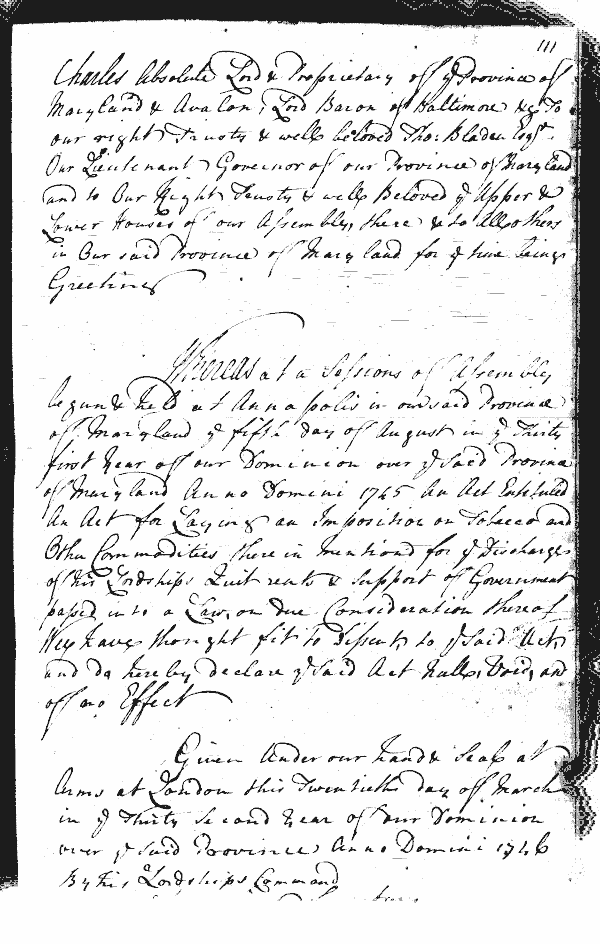 111
Charles Absolute Lord & Proprietary off ye Province of
Maryland & Avalon, Lord Baron of Baltimore &c To
our right Trusty & well beloved Tho: Bladen Esqr.
Our Lieutenant Governor of our Province of Maryland
and to Our Right Trusty & well Beloved ye Upper &
Lower Houses of our Assembly, there & to All others
in Our said Province of Maryland for ye time being
Greeting
Whereas at a Sessions of Assembly
begun & held at Annapolis in our said Province
of Maryland ye fifth day of August in ye Thirty
first Year off our Dominion over ye said Province
of Maryland Anno Domini 1745 An Act Entituled
An Act for Laying an Imposition on Tobacco and
Other Commodities therein mentiond for ye Discharge
of his Lordships Quit rents & Support of Government
passed into a Law, on due Consideration thereof
Wee have thought fit to Dissent to ye said Act,
and do hereby declare ye said Act Null, Void, and
off no Effect
Given Under our hand & Seal at
Arms at London this Twentieth day off March
in ye Thirty Second Year of our Dominion
over ye said Province Anno Domini 1746
By his Lordships Command